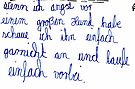 wenn ich angst vor
einem großen Hund habe
schaue ich ihn einfach
garnicht an und laufe
einfach vorbei.